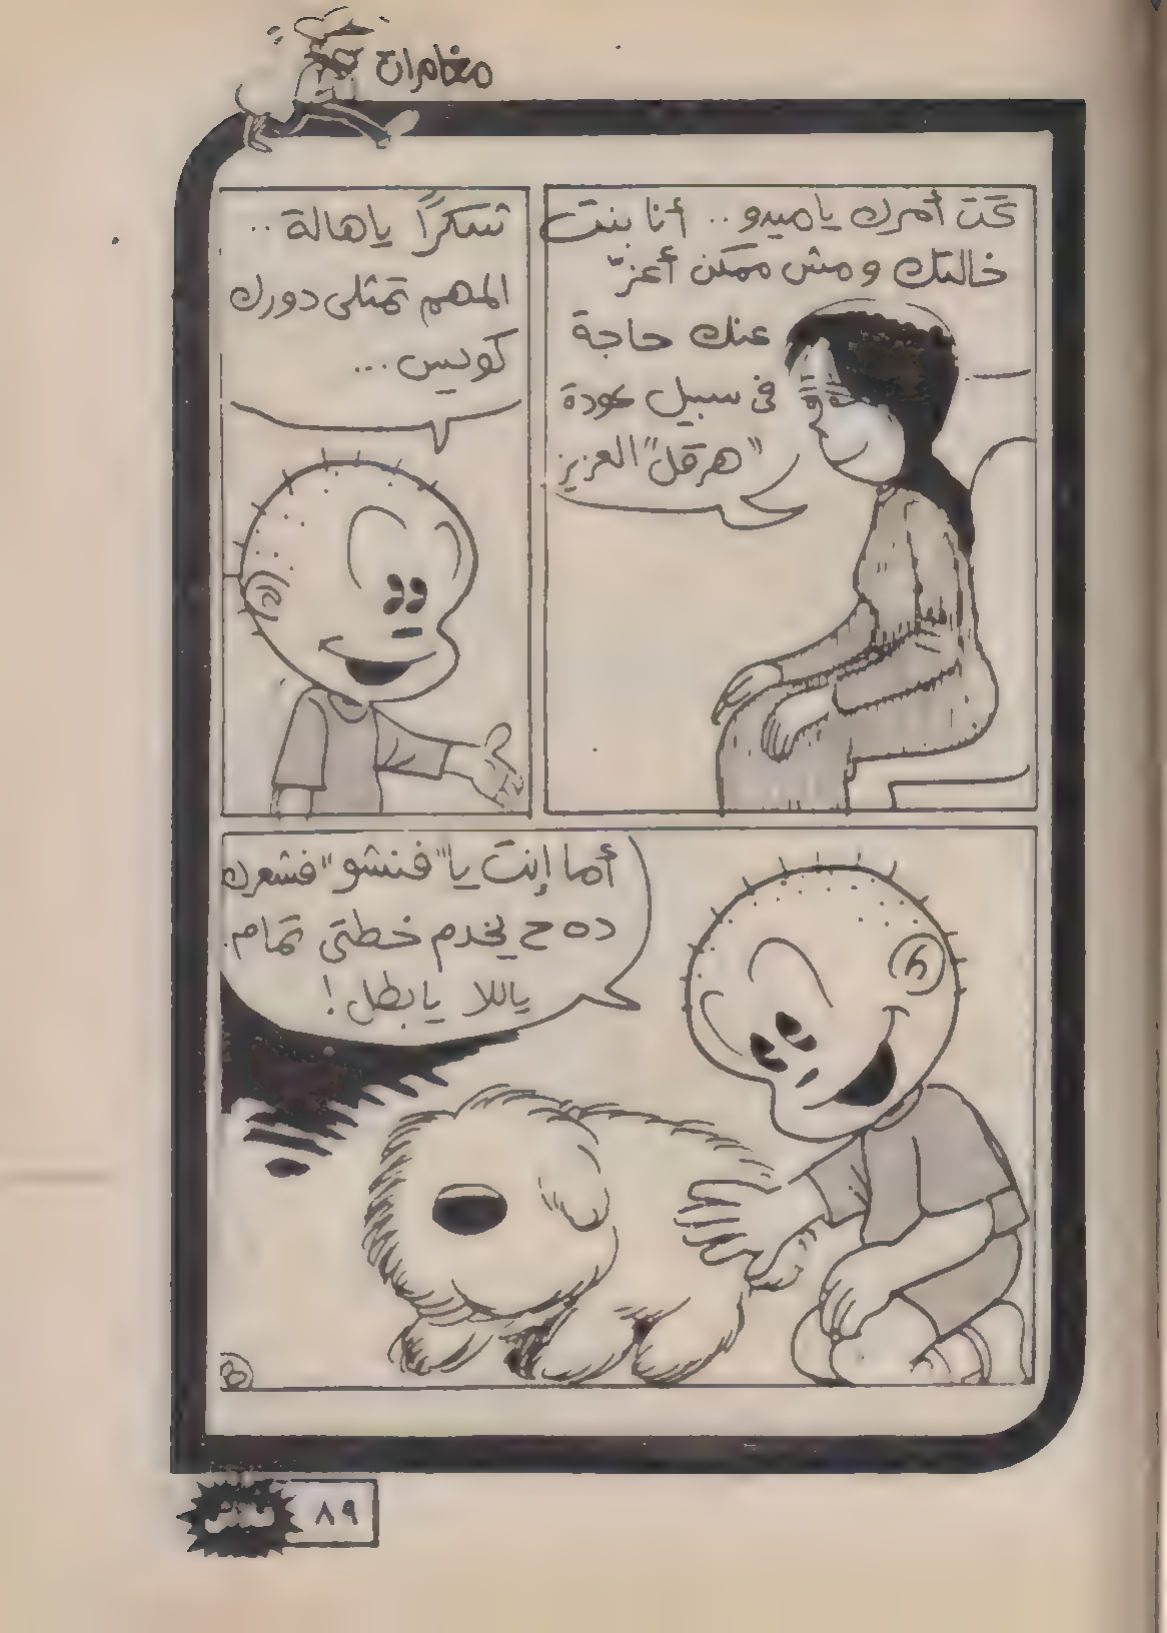 مغامرات
تحت أمرك يا ميدو.. أنا بنت
خالتك ومش ممكن أعزّ
عنك حاجة
فى سبيل عودة
"هرقل" العزيز
شكرًا يا هالة..
المهم تمثلى دورك
كويس...
أما إنت يا "فنشو" فشعرك
ده ح يخدم خطتى تمام.
ياللا يا بطل!
٨٩
فلاش